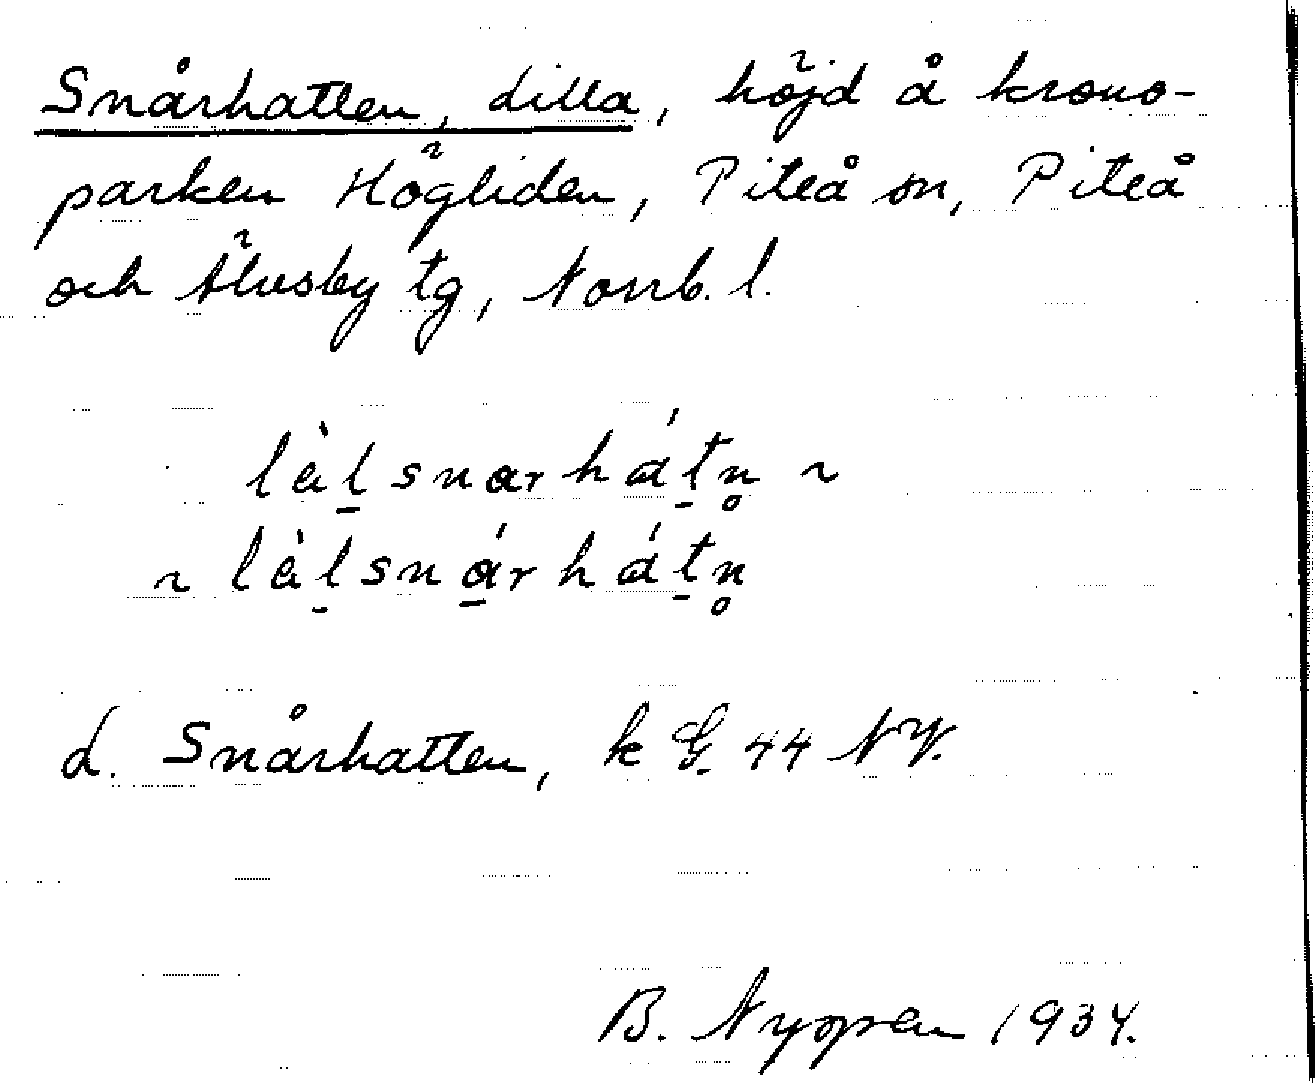 Snårhatten, Lilla, höjd å krono-
parken Högliden, Piteå sn, Piteå
och Älvsby tg, Norrb. l.
lὰl̠snɑrhát̠n̥ ~
~ lὰl̠snɑ̠́rhát̠n̥
L. Snårhatten, k G. 44 NV.
B. Nyopen 1934.